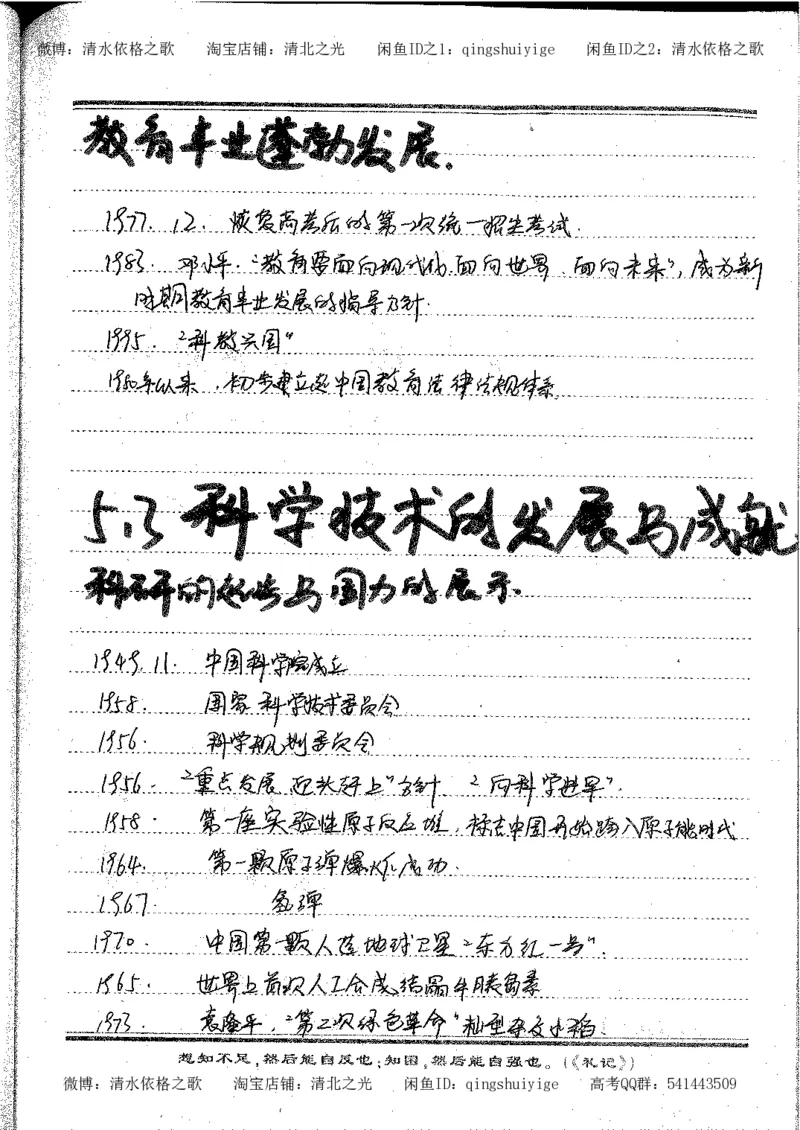 微博：清水依格之歌 淘宝店铺：清北之光 闲鱼ID之1：qingshuiyige 闲鱼ID之2：清水依格之歌
教育事业蓬勃发展.
1977.12. 恢复高考后的第一次统一招生考试.
1983. 邓小平.“教育要面向现代化.面向世界.面向未来”,成为新
时期教育事业发展的指导方针.
1995. “科教兴国”
1980年以来,初步建立起中国教育法律法规体系
5.3 科学技术的发展与成就
科研的起步与国力的展示.
1949.11. 中国科学院成立
1958. 国家科学技术委员会
1956. 科学规划委员会
1956. “重点发展 迎头赶上”方针. “向科学进军”.
1958. 第一座实验性原子反应堆,标志中国开始跨入原子能时代
1964. 第一颗原子弹爆炸成功.
1967. 氢弹
1970. 中国第一颗人造地球卫星“东方红一号”.
1965. 世界上首次人工合成结晶牛胰岛素
1973. 袁隆平,“第二次绿色革命”籼型杂交水稻.
想知不足,然后能自反也;知困,然后能自强也。(《礼记》)
微博：清水依格之歌 淘宝店铺：清北之光 闲鱼ID：qingshuiyige 高考QQ群：541443509